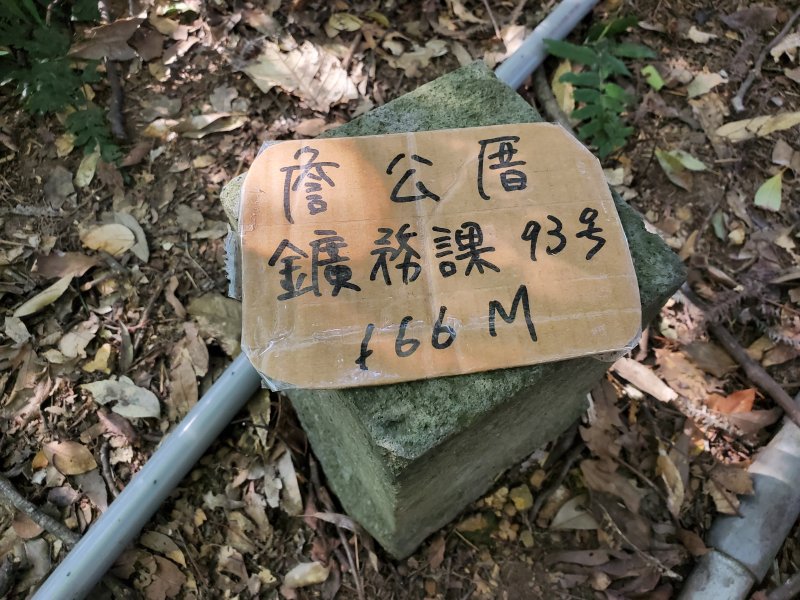 詹公厝
鑛務課 93号
166 M